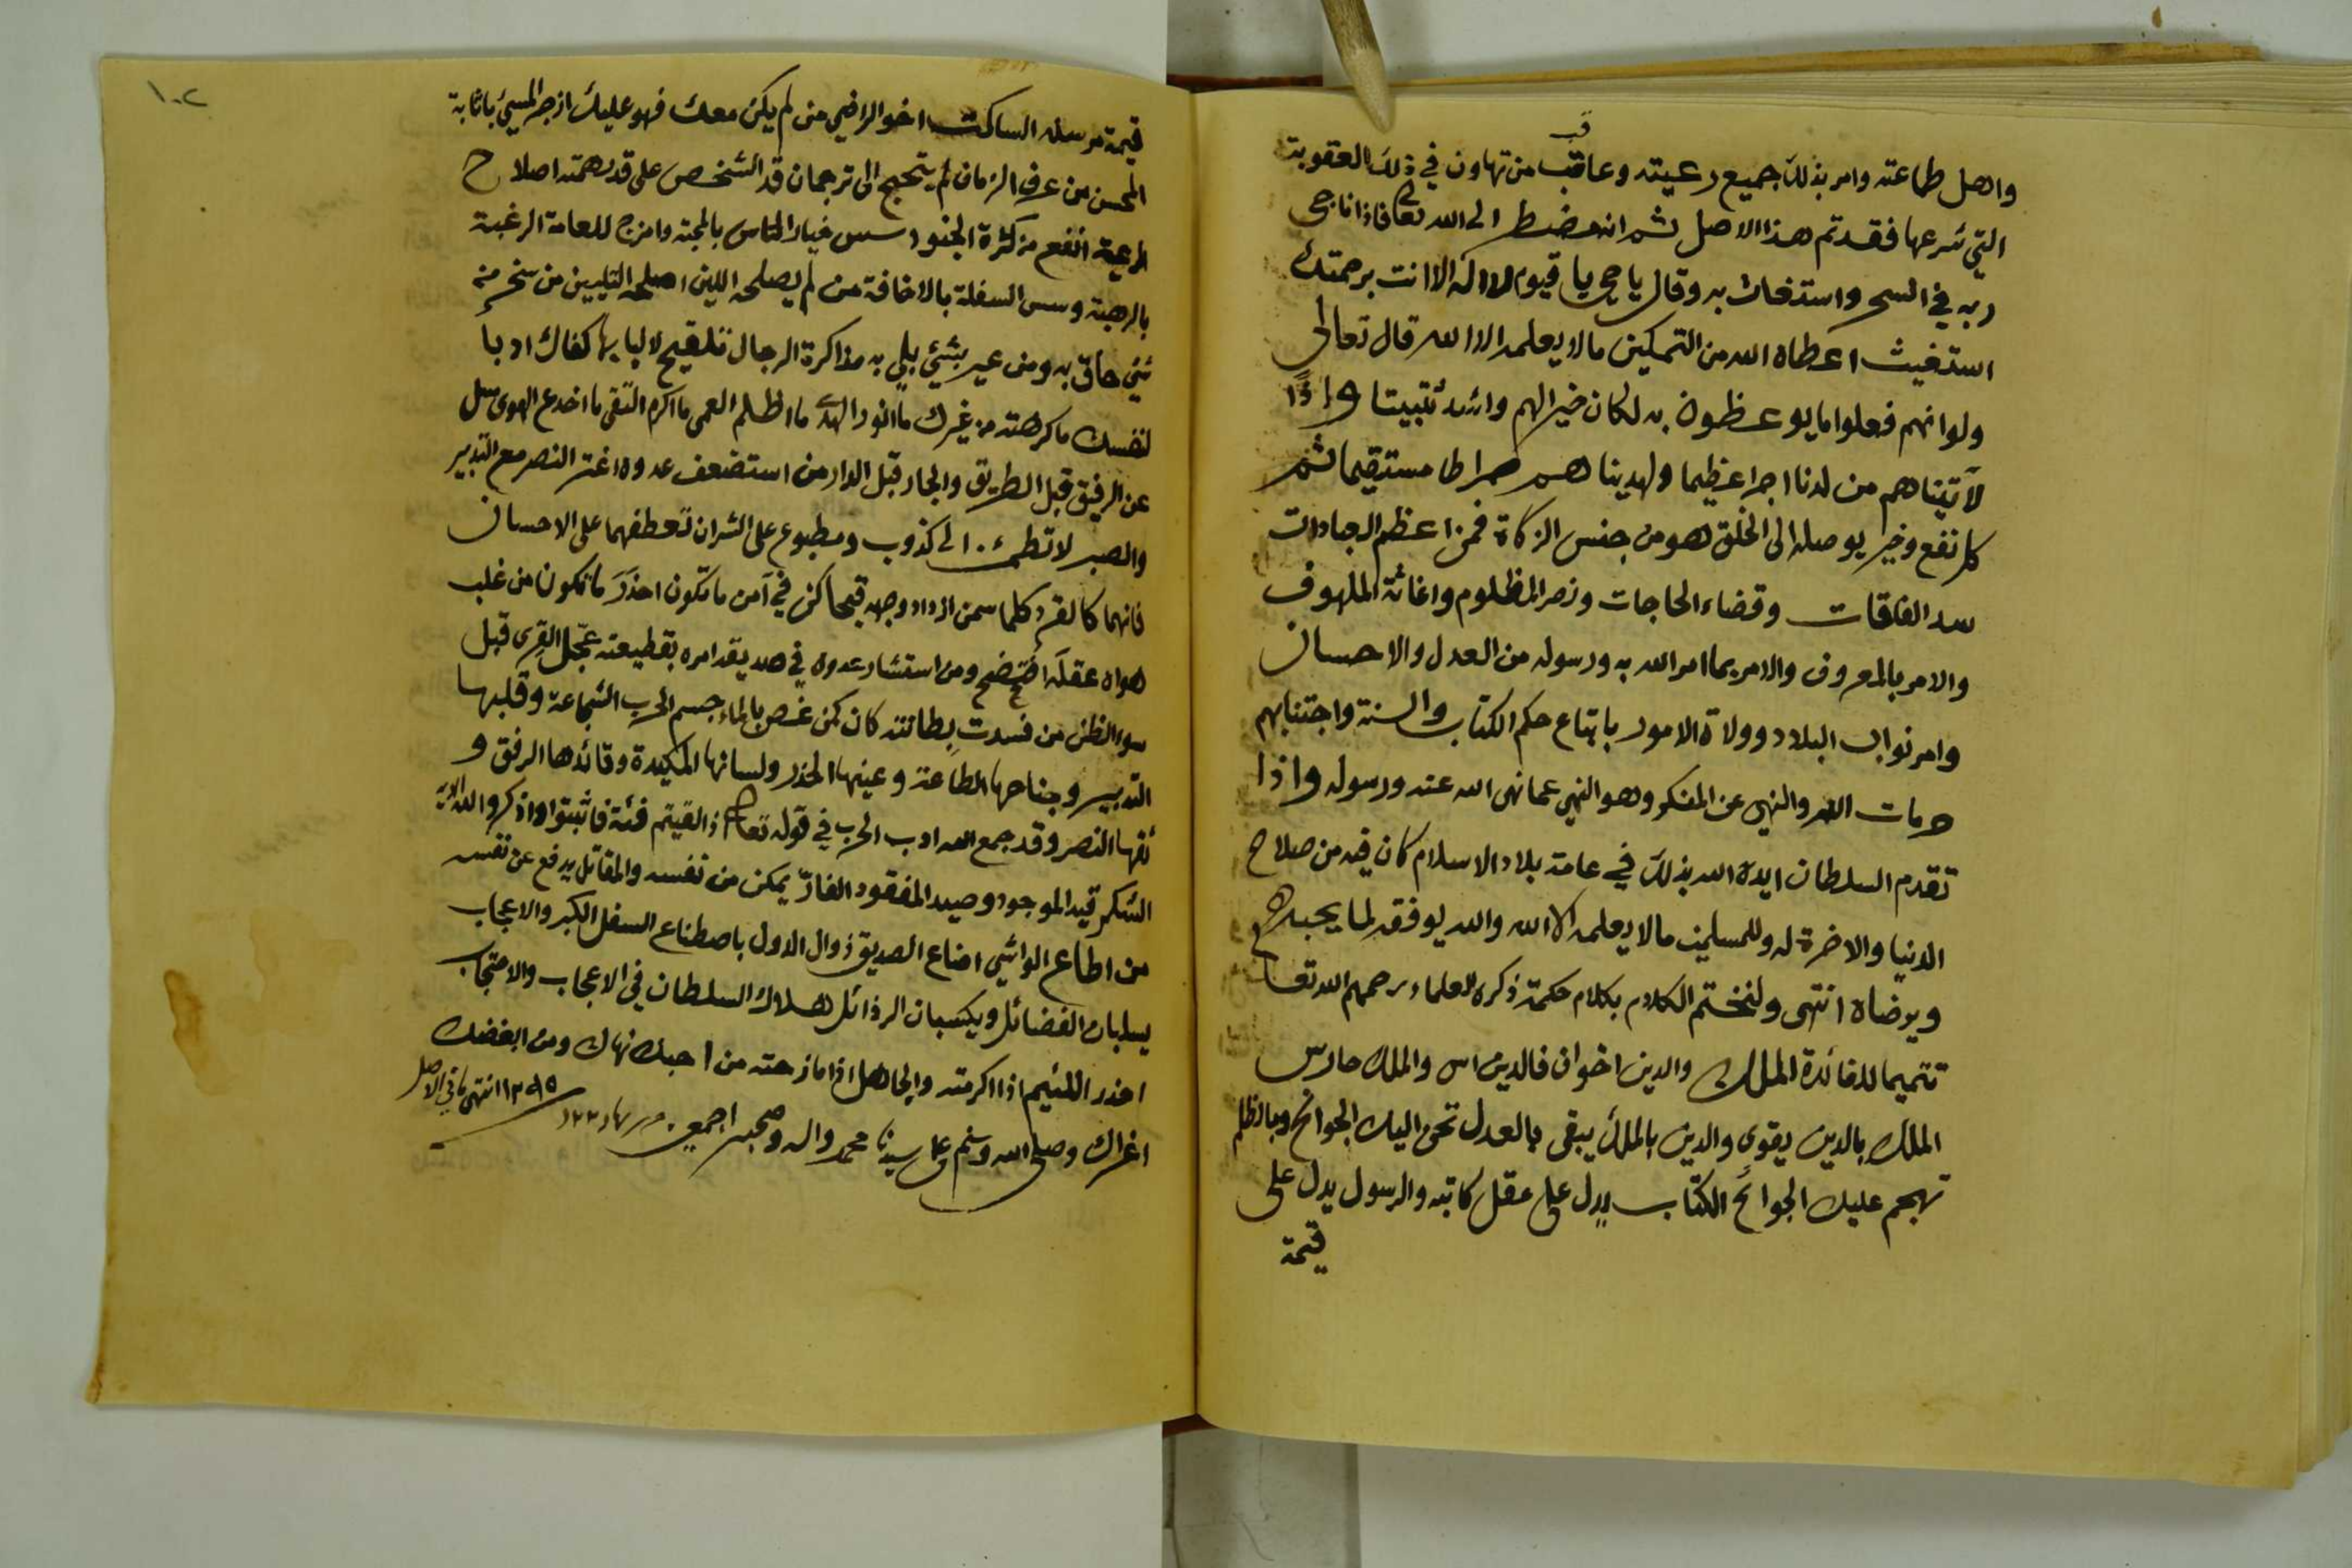 واهل طاعته وامر بذلك جميع رعيته وعاقب من تهاون في ذلك العقوبة
التي شرعها فقد تم هذا الاصل ثم انه مضطر الى الله تعالى فاذا ناجى
ربه في السحر واستغاث به وقال يا حي يا قيوم لا اله الا انت برحمتك
استغيث اعطاه الله من التمكين ما لا يعلمه الا الله قال تعالى
ولو انهم فعلوا ما يوعظون به لكان خيرا لهم واشد تثبيتا واذًا
لآتيناهم من لدنا اجرا عظيما ولهديناهم صراطا مستقيما ثم
كل نفع وخير يوصله الى الخلق هو من جنس الزكاة فمن اعظم العبادات
سد الفاقات وقضاء الحاجات ونصر المظلوم واغاثة الملهوف
والامر بالمعروف والامر بما امر الله به ورسوله من العدل والاحسان
وامر نواب البلاد وولاة الامور باتباع حكم الكتاب والسنة واجتنابهم
حرمات الله والنهي عن المنكر وهو النهي عما نهى الله عنه ورسوله واذا
تقدم السلطان ايده الله بذلك في عامة بلاد الاسلام كان فيه من صلاح
الدنيا والاخرة له وللمسلمين ما لا يعلمه الا الله والله يوفقه لما يحبه
ويرضاه انتهى ولنختم الكلام بكلام حكمة ذكره العلماء رحمهم الله تعالى
تتميما للفائدة الملك والدين اخوان فالدين اس والملك حارس
الملك بالدين يقوى والدين بالملك يبقى بالعدل تحن اليك الجوانح وبالظلم
تهجم عليك الجوائح الكتاب يدل على عقل كاتبه والرسول يدل على
قيمة
١٠٢
قيمة مرسله الساكت اخو الراضي من لم يكن معك فهو عليك ازجر المسيئ باثابة
المحسن من عرف الزمان لم يحتج الى ترجمان قد الشخص على قد همته اصلاح
الرعية انفع من كثرة الجنود سس خيار الناس بالمحبة وامزج للعامة الرغبة
بالرهبة وسس السفلة بالاخافة من لم يصلحه اللين اصلحه التليين من سخر من
شيئ حاق به ومن عير بشيئ بلي به مذاكرة الرجال تلقيح لالبابها كفاك ادبا
لنفسك ما كرهته من غيرك ما انور الهدى ما اظلم العمى ما اكرم التقى ما اخدع الهوى سل
عن الرفيق قبل الطريق والجار قبل الدار من استضعف عدوه اغتر النصر مع التدبير
والصبر لا تطمئن الى كذوب ومطبوع على الشر ان تعطفهما على الاحسان
فانهما كالقرد كلما سمن ازداد وجهه قبحا كن في آمن ما تكون احذر ما تكون من غلب
هواه عقله افتضح ومن استشار عدوه في صديقه امره بقطيعته عجّل القرى قبل
سوء الظن من فسدت بطانته كان كمن غص بالماء جسم الحرب الشجاعة وقلبها
التدبير وجناحها الطاعة وعينها الحذر ولسانها المكيدة وقائدها الرفق و
ثقها النصر وقد جمع الله ادب الحرب في قوله تعالى اذا لقيتم فئة فاثبتوا واذكروا الله الاية
الشكر قيد الموجود وصيد المفقود الفارّ يمكن من نفسه والمقاتل يدفع عن نفسه
من اطاع الواشي اضاع الصديق زوال الدول باصطناع السفل الكبر والاعجاب
يسلبان الفضائل ويكسبان الرذائل هلاك السلطان في الاعجاب والاحتجاب
احذر اللئيم اذا اكرمته والجاهل اذا مازحته من احبك نهاك ومن ابغضك
اغراك وصلى الله وسلم على سيدنا محمد واله وصحبه اجمعين
انتهى ما في الاصل